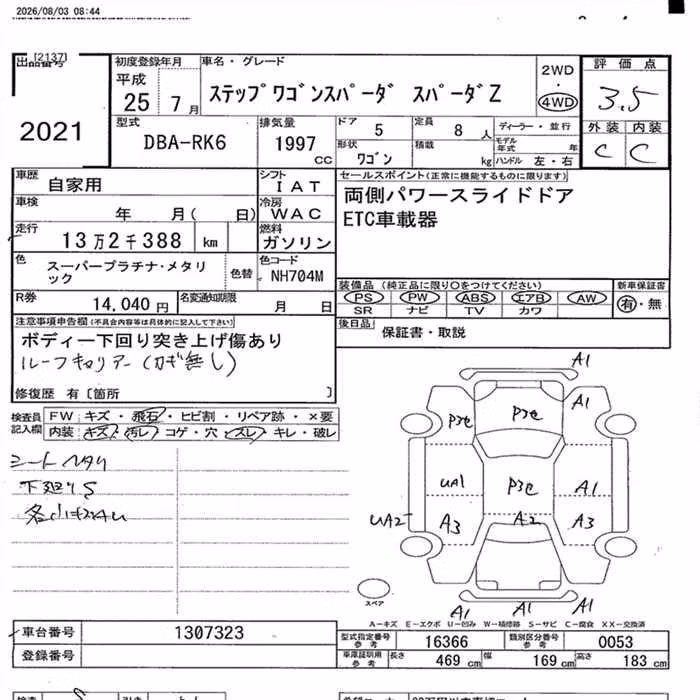 2026/08/03 08:44
出品番号 [2137]
2021
初度登録年月
平成
25 7月
車名・グレード
ステップワゴンスパーダ スパーダZ
2WD
・
4WD
評価点
3.5
外装 内装
C C
型式
DBA-RK6
排気量
1997 CC
ドア 5
定員 8 人
形状 ワゴン
積載 kg
ディーラー・並行
モデル年式 年
ハンドル 左・右
車歴 自家用
シフト IAT
車検 年 月( 日)
冷房 WAC
走行 13万2千388 km
燃料 ガソリン
色 スーパープラチナ・メタリック
色替
色コード NH704M
R券 14,040円
名変通知期限 月 日
セールスポイント(正常に機能するものに限ります)
両側パワースライドドア
ETC車載器
装備品(純正品に限り○をつけてください)
PS PW ABS エアB AW
SR ナビ TV カワ
新車保証書
有・無
後日品 保証書・取説
注意事項申告欄(不具合内容等は具体的に記入して下さい)
ボディー下回り突き上げ傷あり
ルーフキャリアー(カギ無し)
修復歴 有〔箇所 〕
検査員記入欄
FW キズ・飛石・ヒビ割・リペア跡・×要
内装 キズ・汚レ・コゲ・穴・スレ・キレ・破レ
シートヘタリ
下廻りS
A1
A1
P3セ
P3セ
UA1
P3セ
A1
UA2
A3
A2
A3
スペア
A1
A1
A1
A-キズ E-エクボ U-凹み W-補修跡 S-サビ C-腐食 XX-交換済
車台番号 1307323
登録番号
型式指定番号参考 16366
類別区分番号参考 0053
車庫証明用参考 長さ 469 cm 幅 169 cm 高さ 183 cm